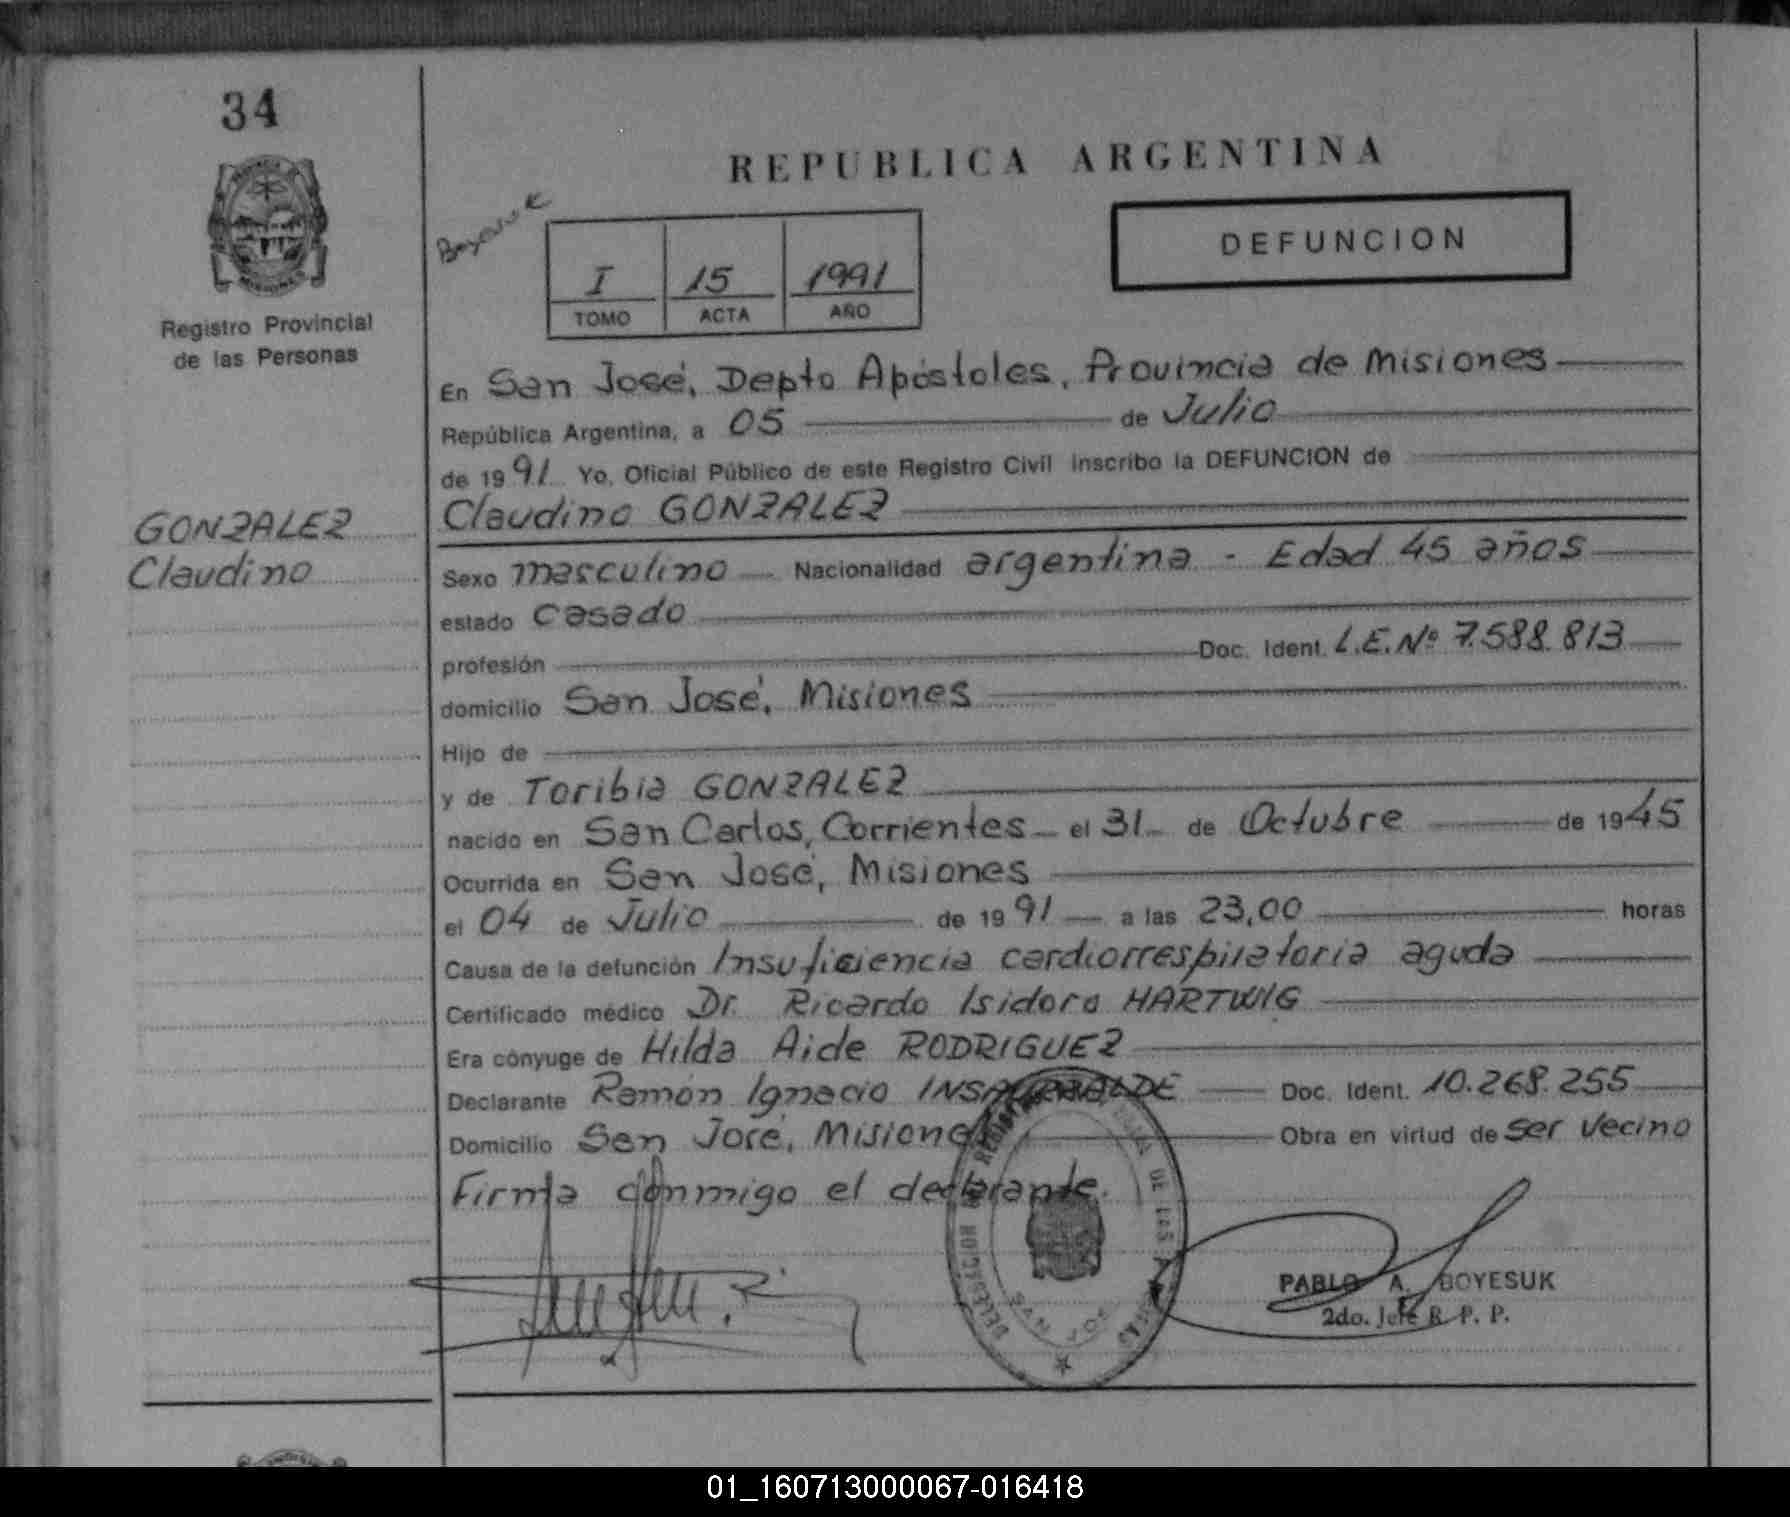 34
REPUBLICA ARGENTINA
DEFUNCION
I 15 1991
TOMO ACTA AÑO
MISIONES
Registro Provincial
de las Personas
GONZALEZ
Claudino
En San José, Depto Apóstoles, Provincia de Misiones
República Argentina, a 05 de Julio
de 1991 Yo, Oficial Público de este Registro Civil inscribo la DEFUNCION de
Claudino GONZALEZ
Sexo masculino Nacionalidad argentina - Edad 45 años
estado casado
profesión Doc. Ident. L.E.Nº 7.588.813
domicilio San José, Misiones
Hijo de
y de Toribia GONZALEZ
nacido en San Carlos, Corrientes el 31 de Octubre de 1945
Ocurrida en San José, Misiones
el 04 de Julio de 1991 a las 23,00 horas
Causa de la defunción Insuficiencia cardiorrespiratoria aguda
Certificado médico Dr. Ricardo Isidoro HARTWIG
Era cónyuge de Hilda Aide RODRIGUEZ
Declarante Ramón Ignacio INSAURRALDE Doc. Ident. 10.268.255
Domicilio San José, Misiones Obra en virtud de ser vecino
Firma conmigo el declarante.
PABLO A. BOYESUK
2do. Jefe R. P. P.
01_160713000067-016418